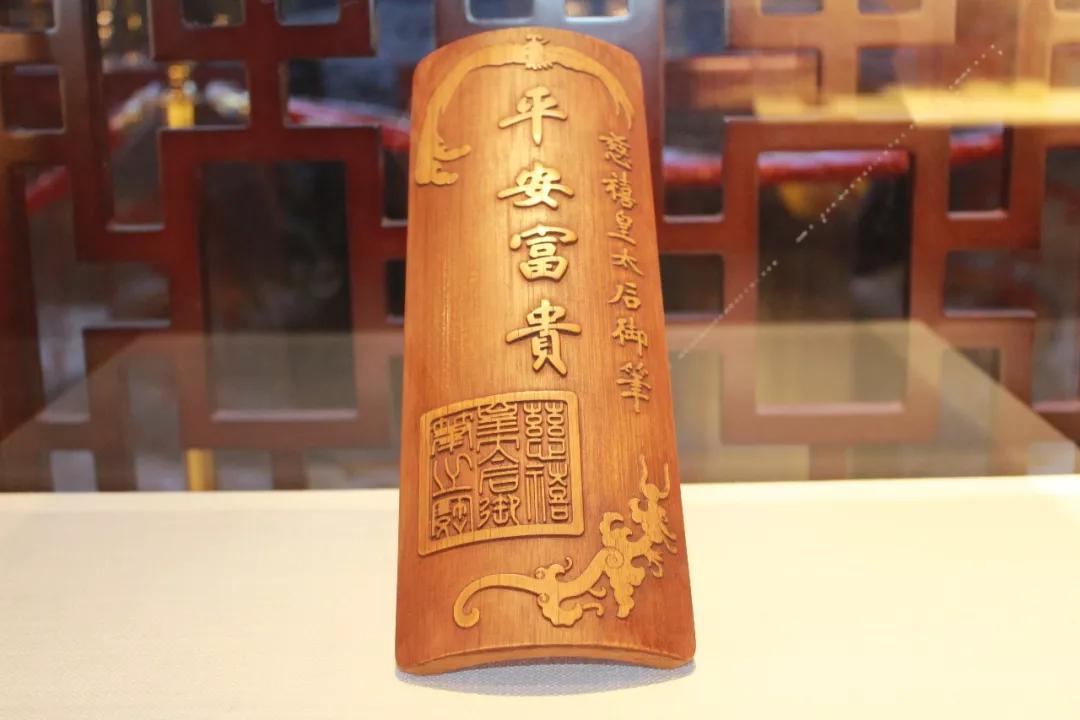 慈禧皇太后御筆
平安富貴
慈禧
皇后御
筆之寶